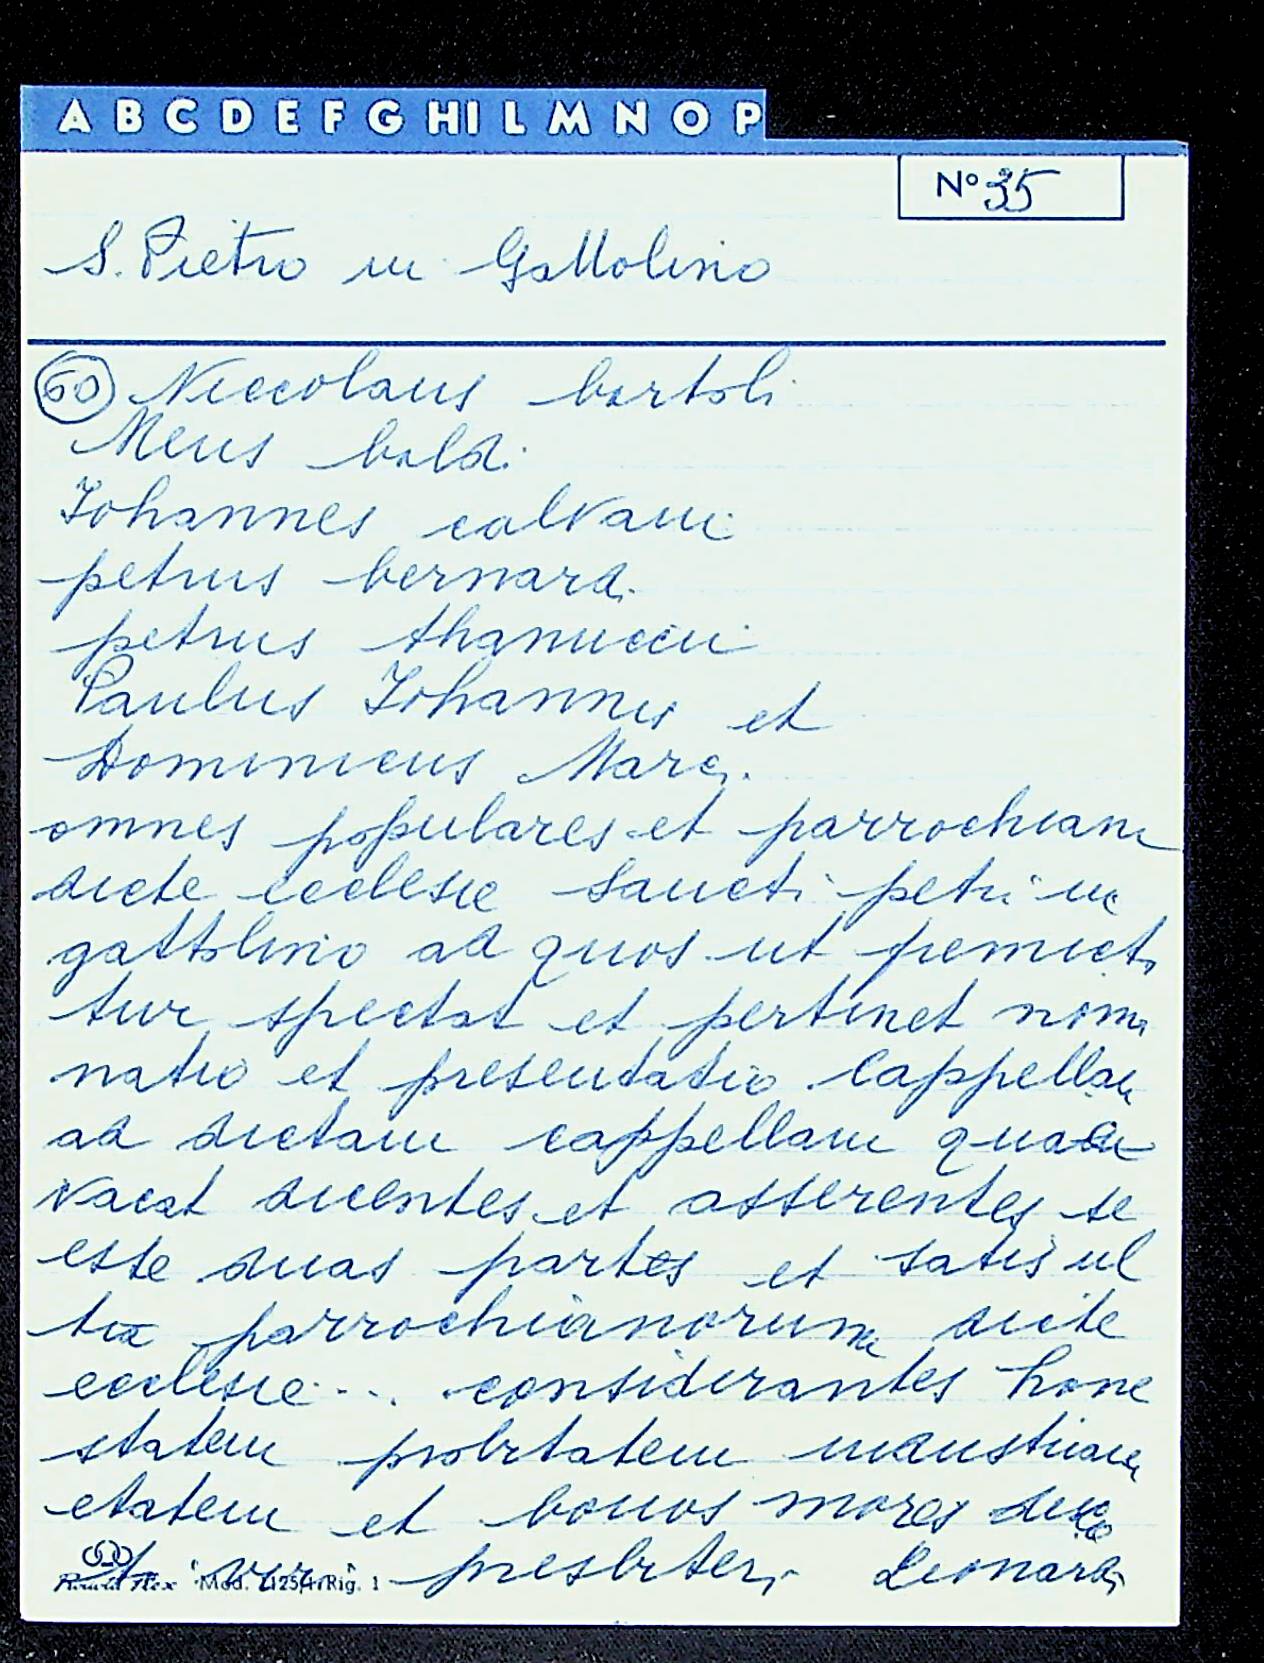 A B C D E F G H I L M N O P
N° 35
S. Pietro in Gattolino
60 Niccolaus bartoli
Meus baldi
Johannes calvani
petrus bernardi
petrus thanuccii
Paulus Johannis et
Dominicus Marci
omnes populares et parrochiani
dicte ecclesie Sancti petri in
gattolino ad quos ut premict
tur spectat et pertinet nomi
natio et presentatio Cappellani
ad dictam cappellam
vacat dicentes et asserentes se
esse duas partes et satis ul
tra parrochianorum dicte
ecclesie ... considerantes hone
statem probitatem industriam
etatem et bonos mores
viri presbiteri Leonardi
Mod. 1125/1 Rig. 1